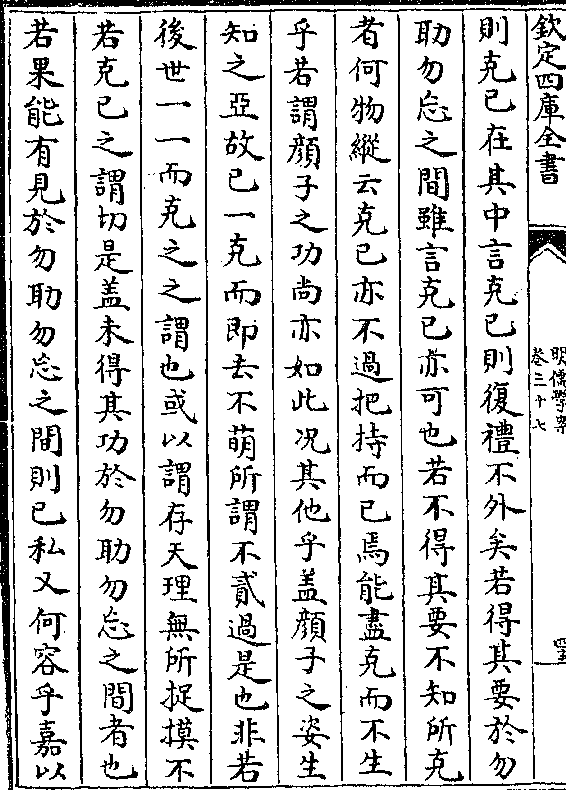 欽定四庫全書
明儒學案
卷三十七
則克已在其中言克已則復禮不外矣若得其要於勿
助勿忘之間雖言克已亦可也若不得其要不知所克
者何物縱云克已亦不過把持而已焉能盡克而不生
乎若謂顔子之功尚亦如此况其他乎盖顔子之姿生
知之亞故已一克而即去不萌所謂不貳過是也非若
後世一一而克之之謂也或以謂存天理無所捉摸不
若克已之謂切是盖未得其功於勿助勿忘之間者也
若果能有見於勿助勿忘之間則已私又何容乎嘉以